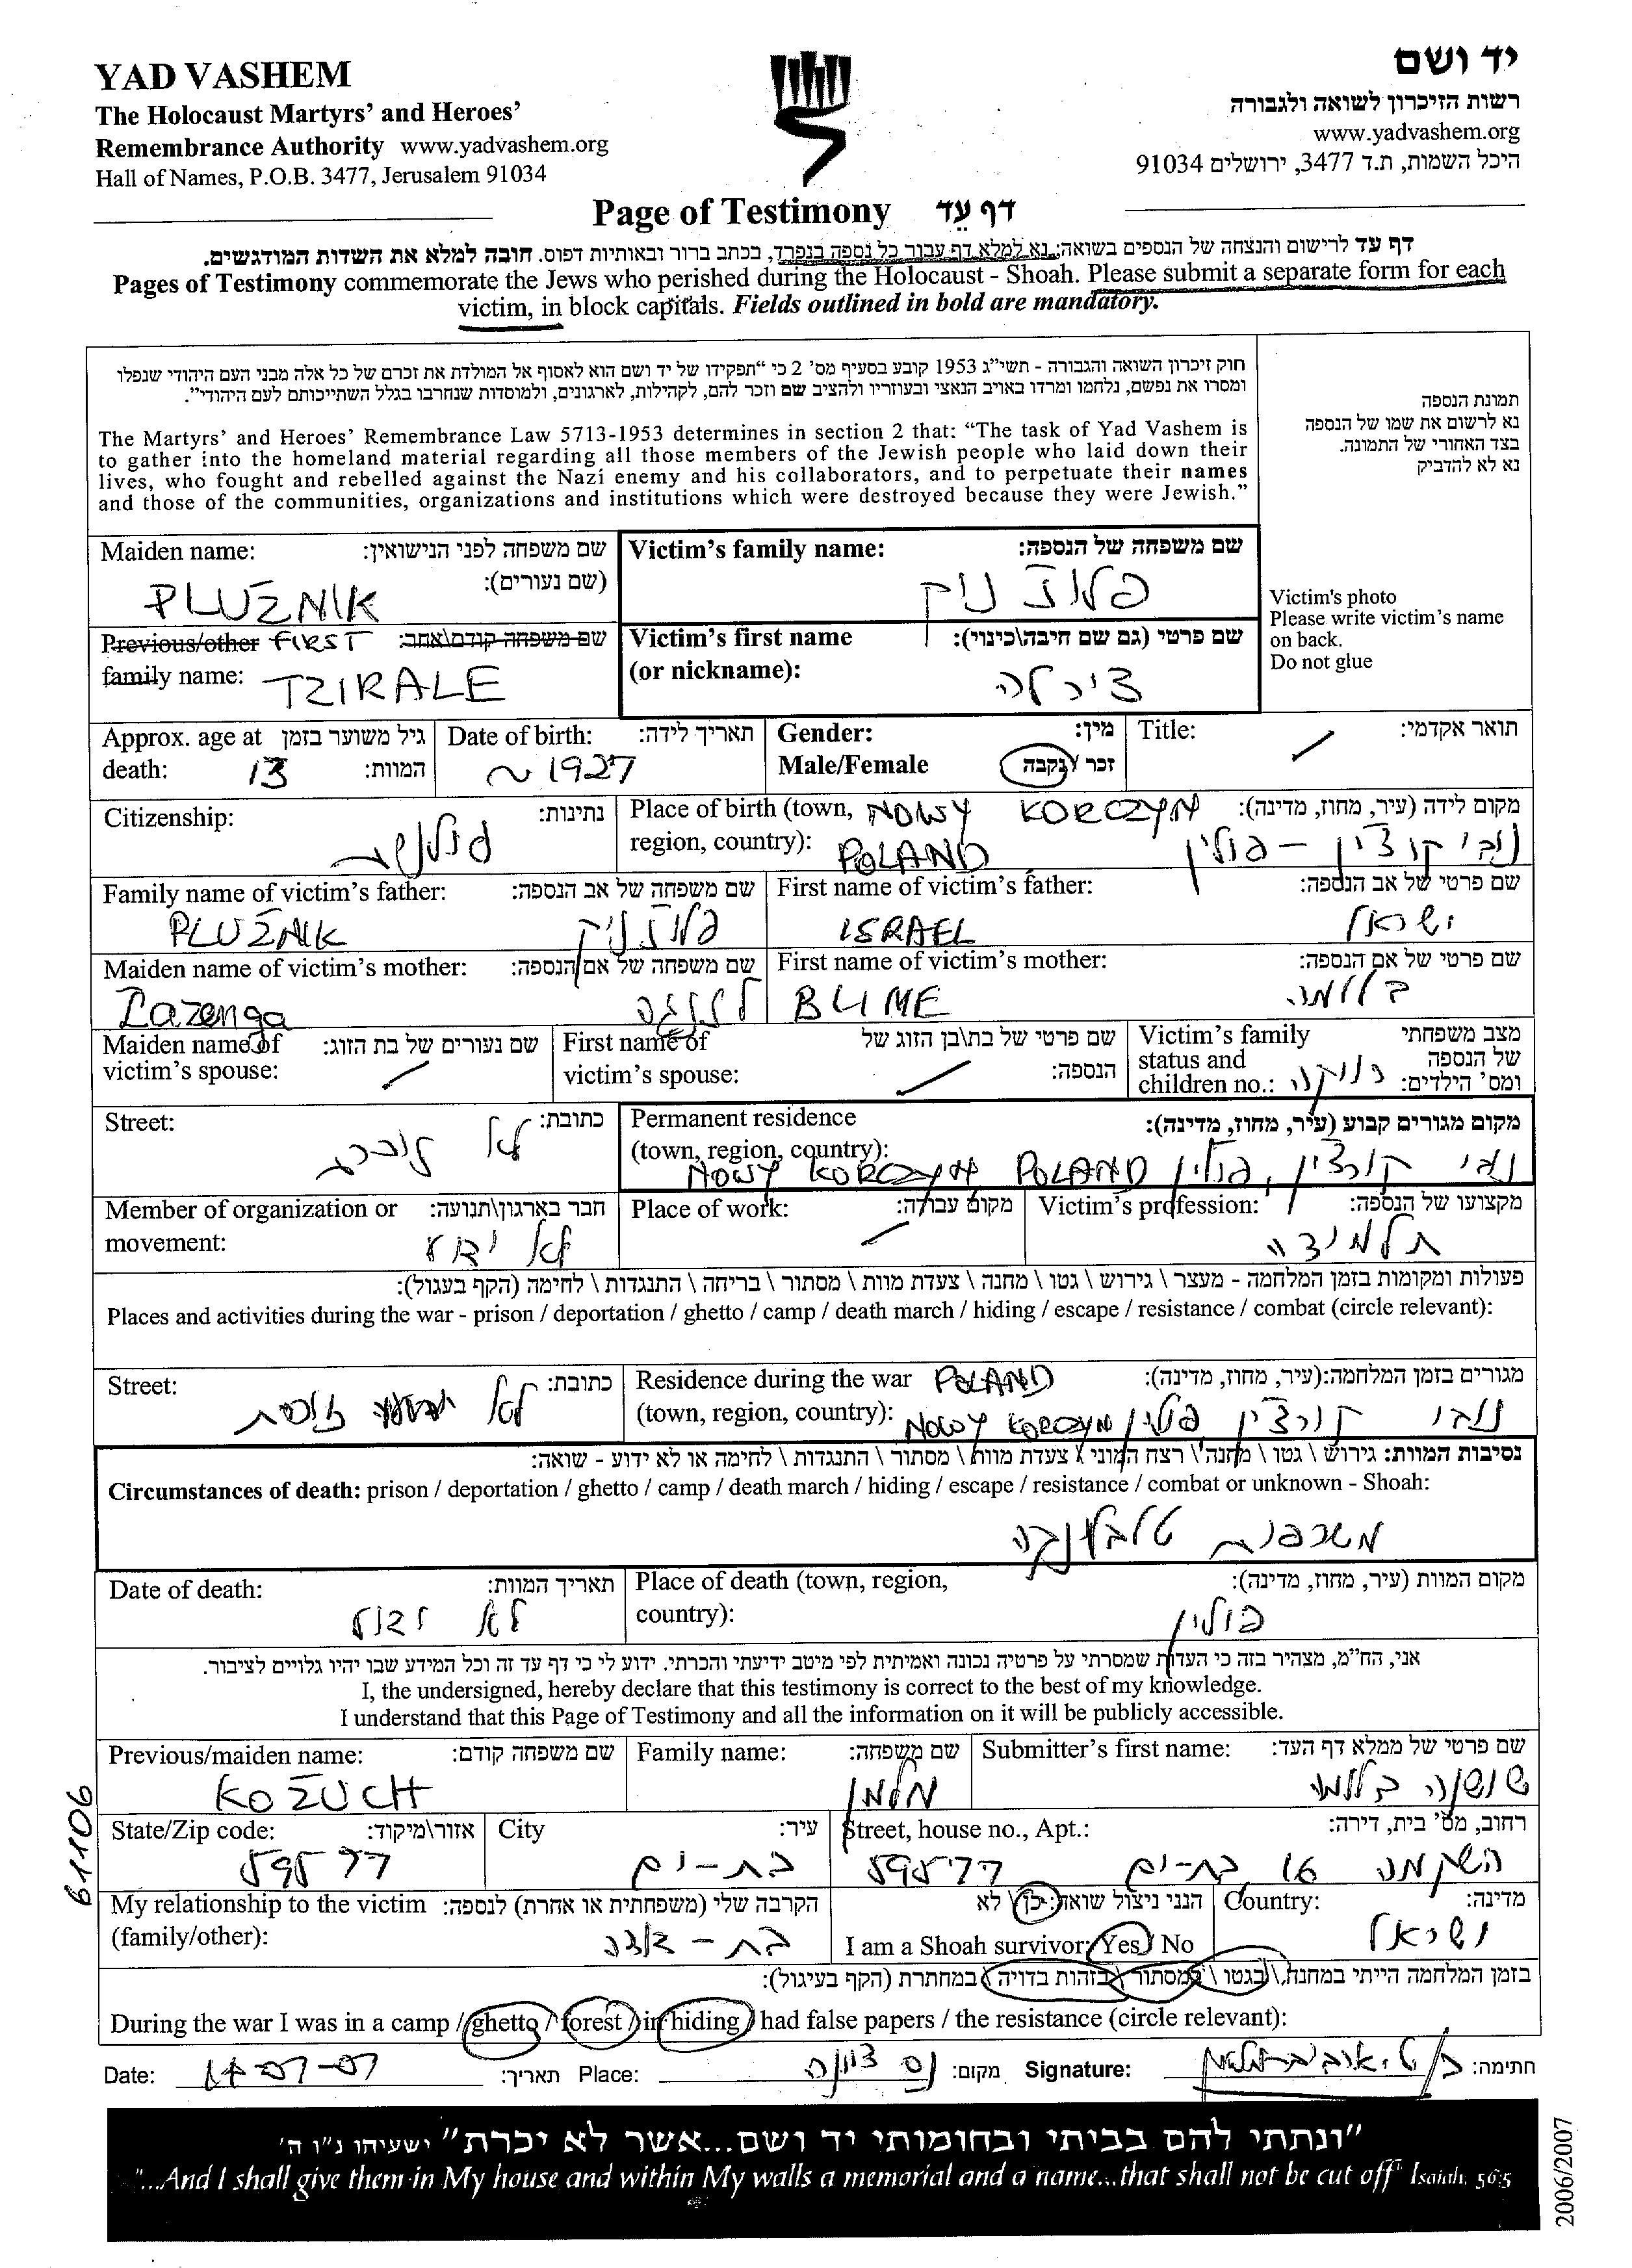 YAD VASHEM
The Holocaust Martyrs' and Heroes'
Remembrance Authority www.yadvashem.org
Hall of Names, P.O.B. 3477, Jerusalem 91034
יד ושם
רשות הזיכרון לשואה ולגבורה
www.yadvashem.org
היכל השמות, ת.ד 3477, ירושלים 91034
Page of Testimony דף עֵד
דף עד לרישום והנצחה של הנספים בשואה; נא למלא דף עבור כל נספה בנפרד, בכתב ברור ובאותיות דפוס. חובה למלא את השדות המודגשים.
Pages of Testimony commemorate the Jews who perished during the Holocaust - Shoah. Please submit a separate form for each
victim, in block capitals. Fields outlined in bold are mandatory.
חוק זיכרון השואה והגבורה - תשי"ג 1953 קובע בסעיף מס' 2 כי "תפקידו של יד ושם הוא לאסוף אל המולדת את זכרם של כל אלה מבני העם היהודי שנפלו
ומסרו את נפשם, נלחמו ומרדו באויב הנאצי ובעוזריו ולהציב שם וזכר להם, לקהילות, לארגונים, ולמוסדות שנחרבו בגלל השתייכותם לעם היהודי".
The Martyrs' and Heroes' Remembrance Law 5713-1953 determines in section 2 that: "The task of Yad Vashem is
to gather into the homeland material regarding all those members of the Jewish people who laid down their
lives, who fought and rebelled against the Nazi enemy and his collaborators, and to perpetuate their names
and those of the communities, organizations and institutions which were destroyed because they were Jewish."
תמונת הנספה
נא לרשום את שמו של הנספה
בצד האחורי של התמונה.
נא לא להדביק
Victim's photo
Please write victim's name
on back.
Do not glue
Maiden name: שם משפחה לפני הנישואין:
(שם נעורים):
PLUŻNIK
Victim's family name: שם משפחה של הנספה:
פלוז'ניק
Previous/other FIRST שם משפחה קודם\אחר:
family name: TZIRALE
Victim's first name שם פרטי (גם שם חיבה\כינוי):
(or nickname): צירלה
Approx. age at גיל משוער בזמן
death: 13 המוות:
Date of birth: תאריך לידה:
~ 1927
Gender: מין:
Male/Female זכר / נקבה
Title: תואר אקדמי:
Citizenship: נתינות:
פולנית
Place of birth (town, NOWY KORCZYN מקום לידה (עיר, מחוז, מדינה):
region, country): POLAND נובי קורצ'ין - פולין
Family name of victim's father: שם משפחה של אב הנספה:
PLUŻNIK פלוז'ניק
First name of victim's father: שם פרטי של אב הנספה:
ISRAEL ישראל
Maiden name of victim's mother: שם משפחה של אם הנספה:
Lazenga לזנגה
First name of victim's mother: שם פרטי של אם הנספה:
BLIME בלומה
Maiden name of שם נעורים של בת הזוג:
victim's spouse:
First name of שם פרטי של בת\בן הזוג של
victim's spouse: הנספה:
Victim's family מצב משפחתי
status and של הנספה
children no.: רווקה ומס' הילדים:
Street: כתובת:
לא זוכרת
Permanent residence מקום מגורים קבוע (עיר, מחוז, מדינה):
(town, region, country):
NOWY KORCZYN POLAND נובי קורצ'ין, פולין
Member of organization or חבר בארגון\תנועה:
movement: לא ידוע
Place of work: מקום עבודה:
Victim's profession: מקצועו של הנספה:
תלמידה
פעולות ומקומות בזמן המלחמה - מעצר \ גירוש \ גטו \ מחנה \ צעדת מוות \ מסתור \ בריחה \ התנגדות \ לחימה (הקף בעגול):
Places and activities during the war - prison / deportation / ghetto / camp / death march / hiding / escape / resistance / combat (circle relevant):
Street: כתובת:
לא זוכרת
Residence during the war POLAND מגורים בזמן המלחמה:(עיר, מחוז, מדינה):
(town, region, country): NOWY KORCZYN נובי קורצ'ין פולין
נסיבות המוות: גירוש \ גטו \ מחנה \ רצח המוני \ צעדת מוות \ מסתור \ התנגדות \ לחימה או לא ידוע - שואה:
Circumstances of death: prison / deportation / ghetto / camp / death march / hiding / escape / resistance / combat or unknown - Shoah:
משרפות טרבלינקה
Date of death: תאריך המוות:
לא ידוע
Place of death (town, region, מקום המוות (עיר, מחוז, מדינה):
country): פולין
אני, הח"מ, מצהיר בזה כי העדות שמסרתי על פרטיה נכונה ואמיתית לפי מיטב ידיעתי והכרתי. ידוע לי כי דף עד זה וכל המידע שבו יהיו גלויים לציבור.
I, the undersigned, hereby declare that this testimony is correct to the best of my knowledge.
I understand that this Page of Testimony and all the information on it will be publicly accessible.
Previous/maiden name: שם משפחה קודם:
KOŻUCH
Family name: שם משפחה:
מלמן
Submitter's first name: שם פרטי של ממלא דף העד:
שושנה בלומה
State/Zip code: אזור\מיקוד:
59577
City עיר:
בת-ים
Street, house no., Apt.: רחוב, מס' בית, דירה:
השקמה 16 בת-ים 59577
My relationship to the victim הקרבה שלי (משפחתית או אחרת) לנספה:
(family/other): בת-דודה
הנני ניצול שואה: כן \ לא
I am a Shoah survivor: Yes / No
Country: מדינה:
ישראל
בזמן המלחמה הייתי במחנה \ בגטו \ במסתור \ בזהות בדויה \ במחתרת (הקף בעיגול):
During the war I was in a camp / ghetto / forest / in hiding / had false papers / the resistance (circle relevant):
Date: 17-07-07 תאריך: Place: נס ציונה מקום: Signature: חתימה:
"ונתתי להם בביתי ובחומותי יד ושם...אשר לא יכרת" ישעיהו נ"ו ה'
"...And I shall give them in My house and within My walls a memorial and a name...that shall not be cut off" Isaiah, 56:5
61106
2006/2007